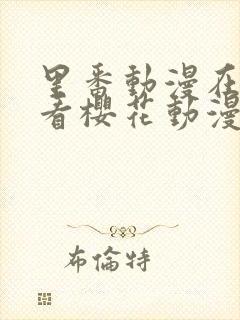 里番動漫在
看櫻花動漫
布倫特